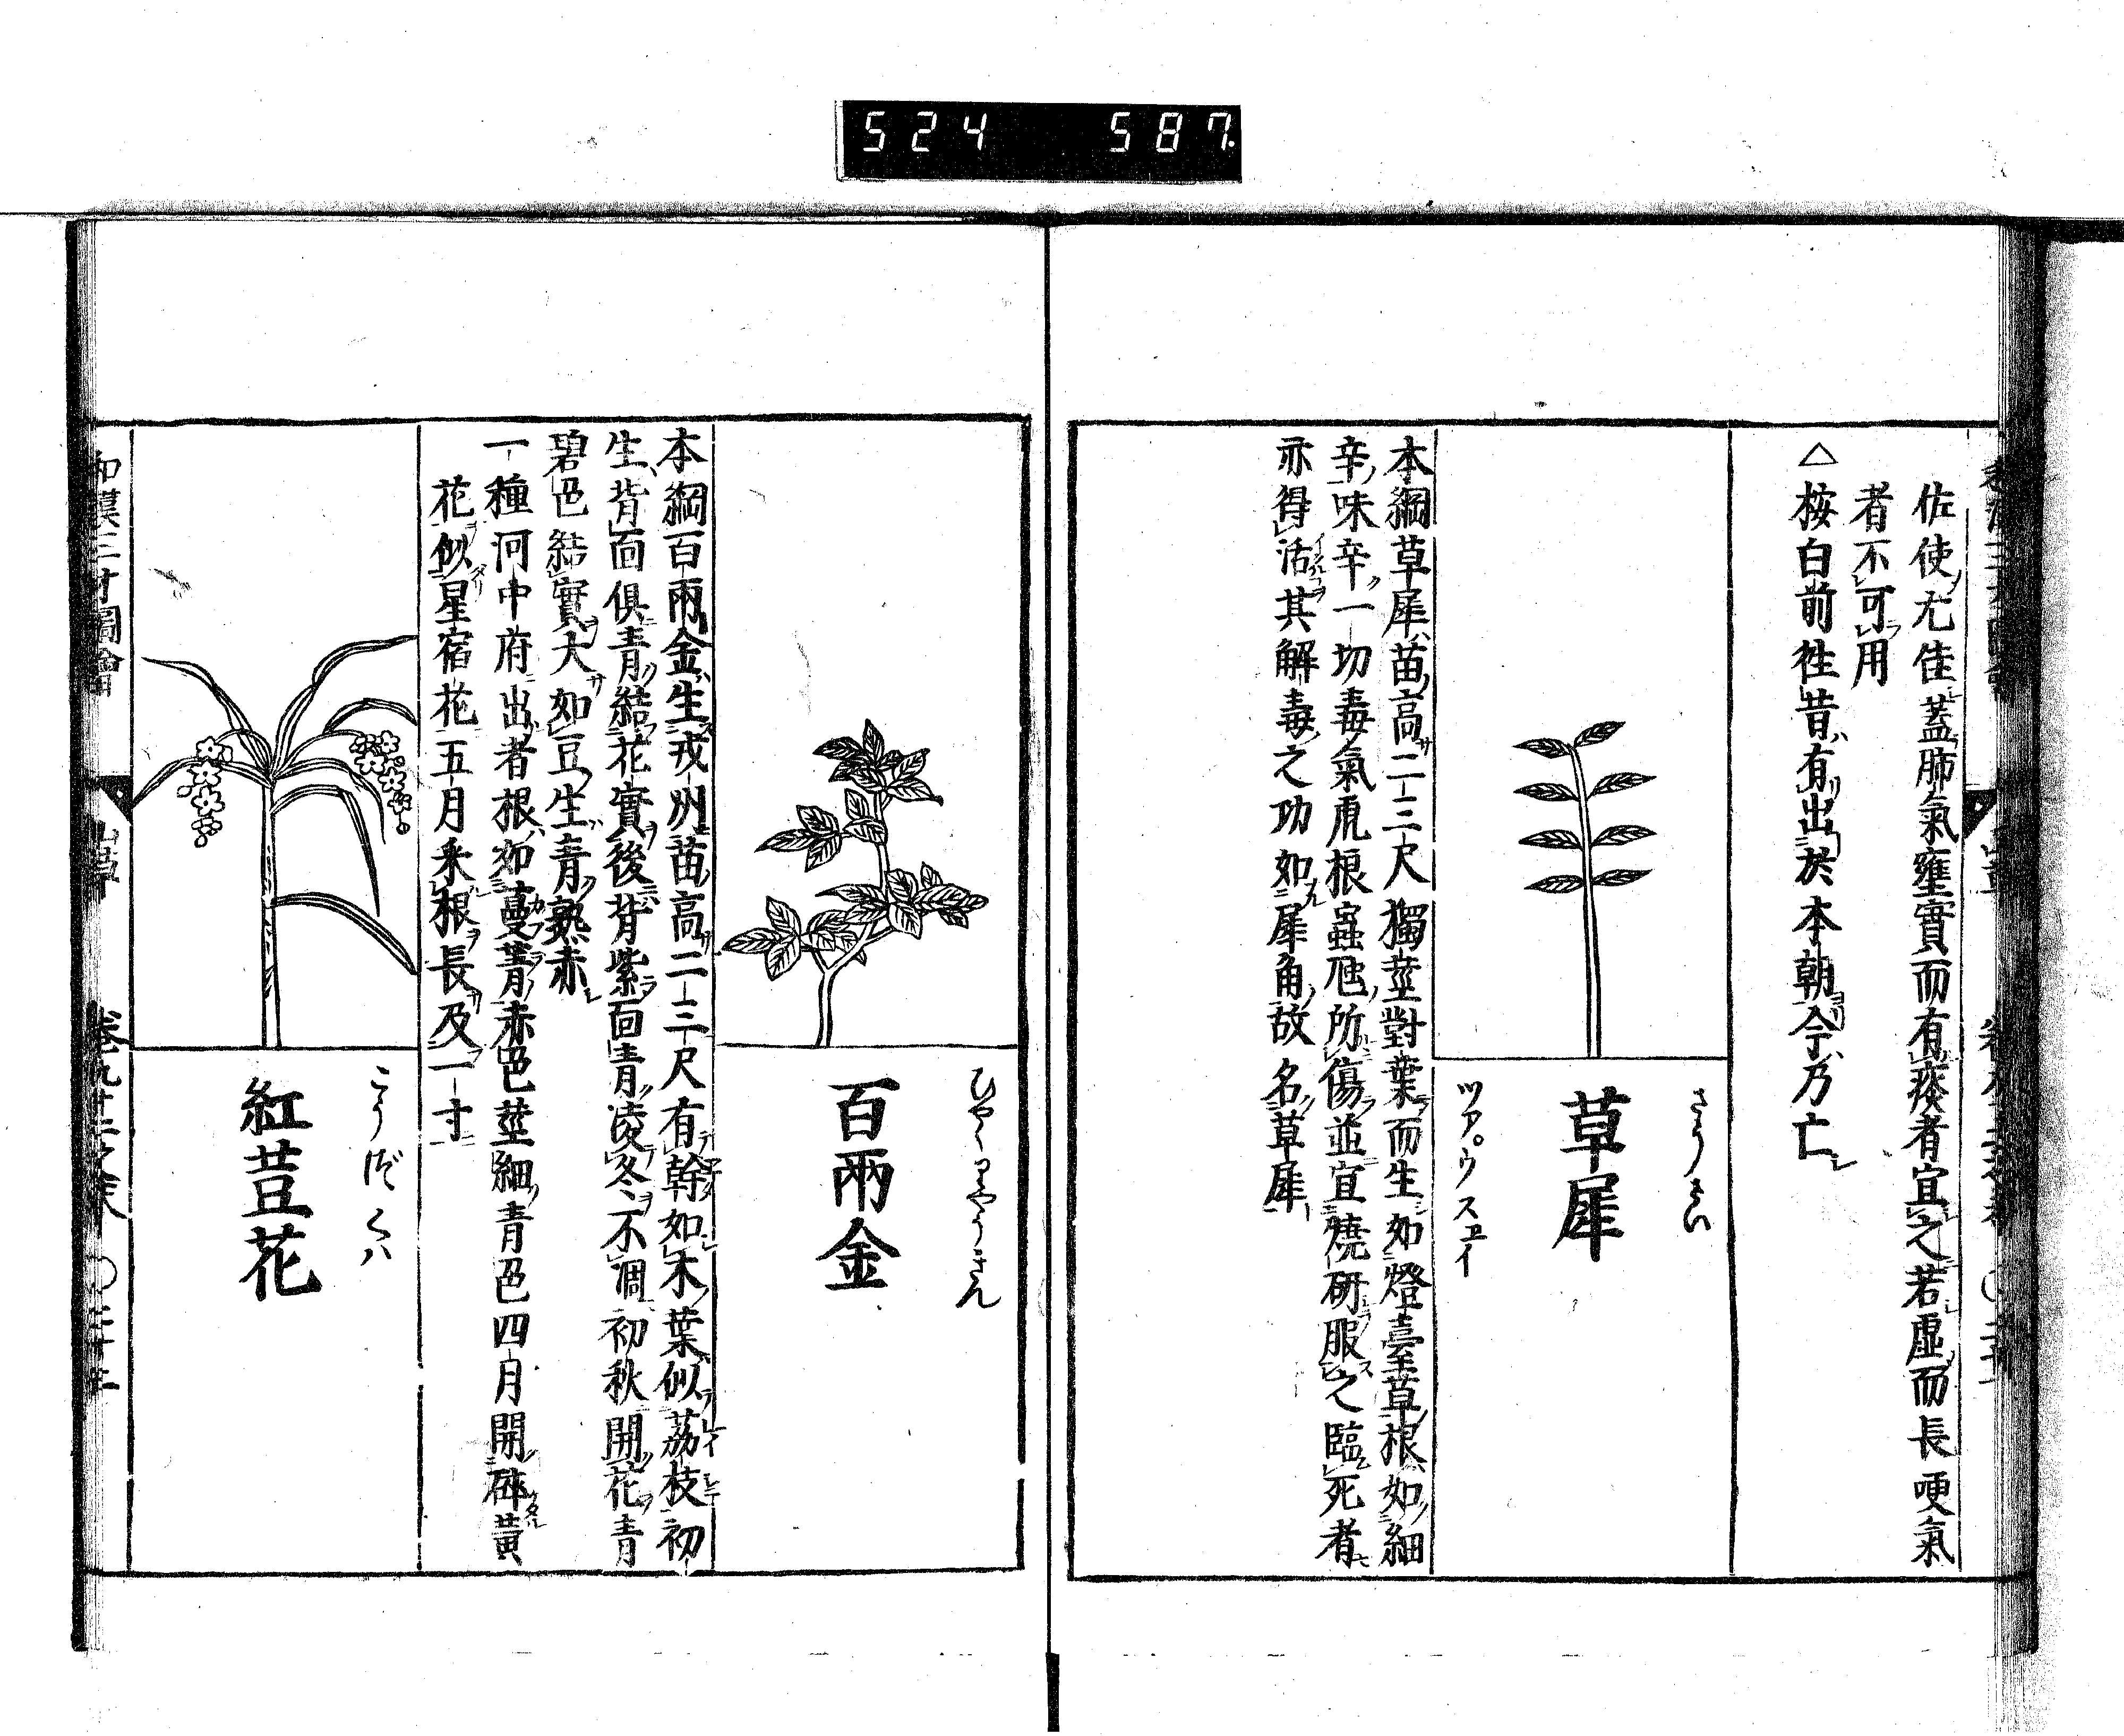 524 587.
佐使尤佳蓋肺氣壅實而有痰者宜之若虛而長哽氣
者不可用
△按白前徃昔有出於本朝今乃亡
さうさい
草犀
ツア゜ウスヱイ
本綱草犀苗高二三尺獨莖對葉而生如燈臺草根如細
辛味辛一切毒氣虎根蟲虺所傷並宜燒研服之臨死者
亦得活其解毒之功如犀角故名草犀
ひやくりやうきん
百兩金
本綱百兩金生戎州苗高二三尺有幹如木葉似荔枝初
生背面俱青結花實後背紫面青凌冬不凋初秋開花青
碧色結實大如豆生青熟赤
一種河中府出者根如蔓菁赤色莖細青色四月開碎黃
花似星宿花五月采根長及一寸
こうづくハ
紅荳花
和漢三才圖會 山草 卷九十二之末 〇二十二